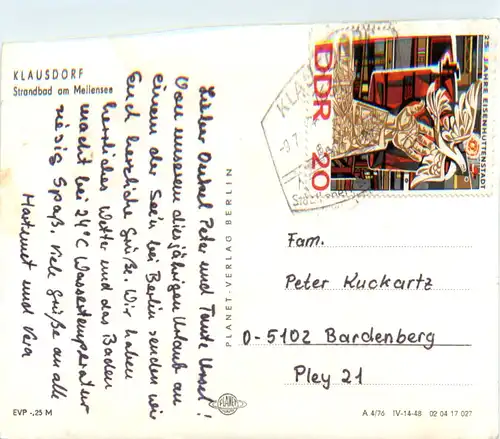 KLAUSDORF
Strandbad am Mellensee
Lieber Onkel Peter und Tante Ursel!
Von unserem diesjährigen Urlaub an
einem der See'n bei Berlin senden wir
Euch herzliche Grüße. Wir haben
herrliches Wetter und das Baden
macht bei 24°C Wassertemperatur
riesig Spaß. Viele Grüße an alle
Hartmut und Vera
PLANET-VERLAG BERLIN
PLANET
25 JAHRE EISENHÜTTENSTADT
DDR 20
KLAUSDORF
Fam.
Peter Kuckartz
D-5102 Bardenberg
Pley 21
EVP -,25 M
A 4/76 IV-14-48 02 04 17 027